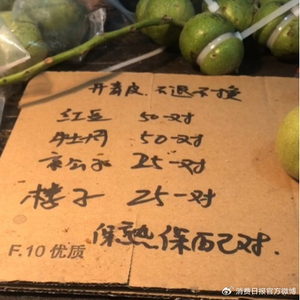 开青皮 不退不换
红豆 50一对
50一对
公子 25一对
楼子 25一对
保熟保 对
F.10 优质
消费日报官方微博